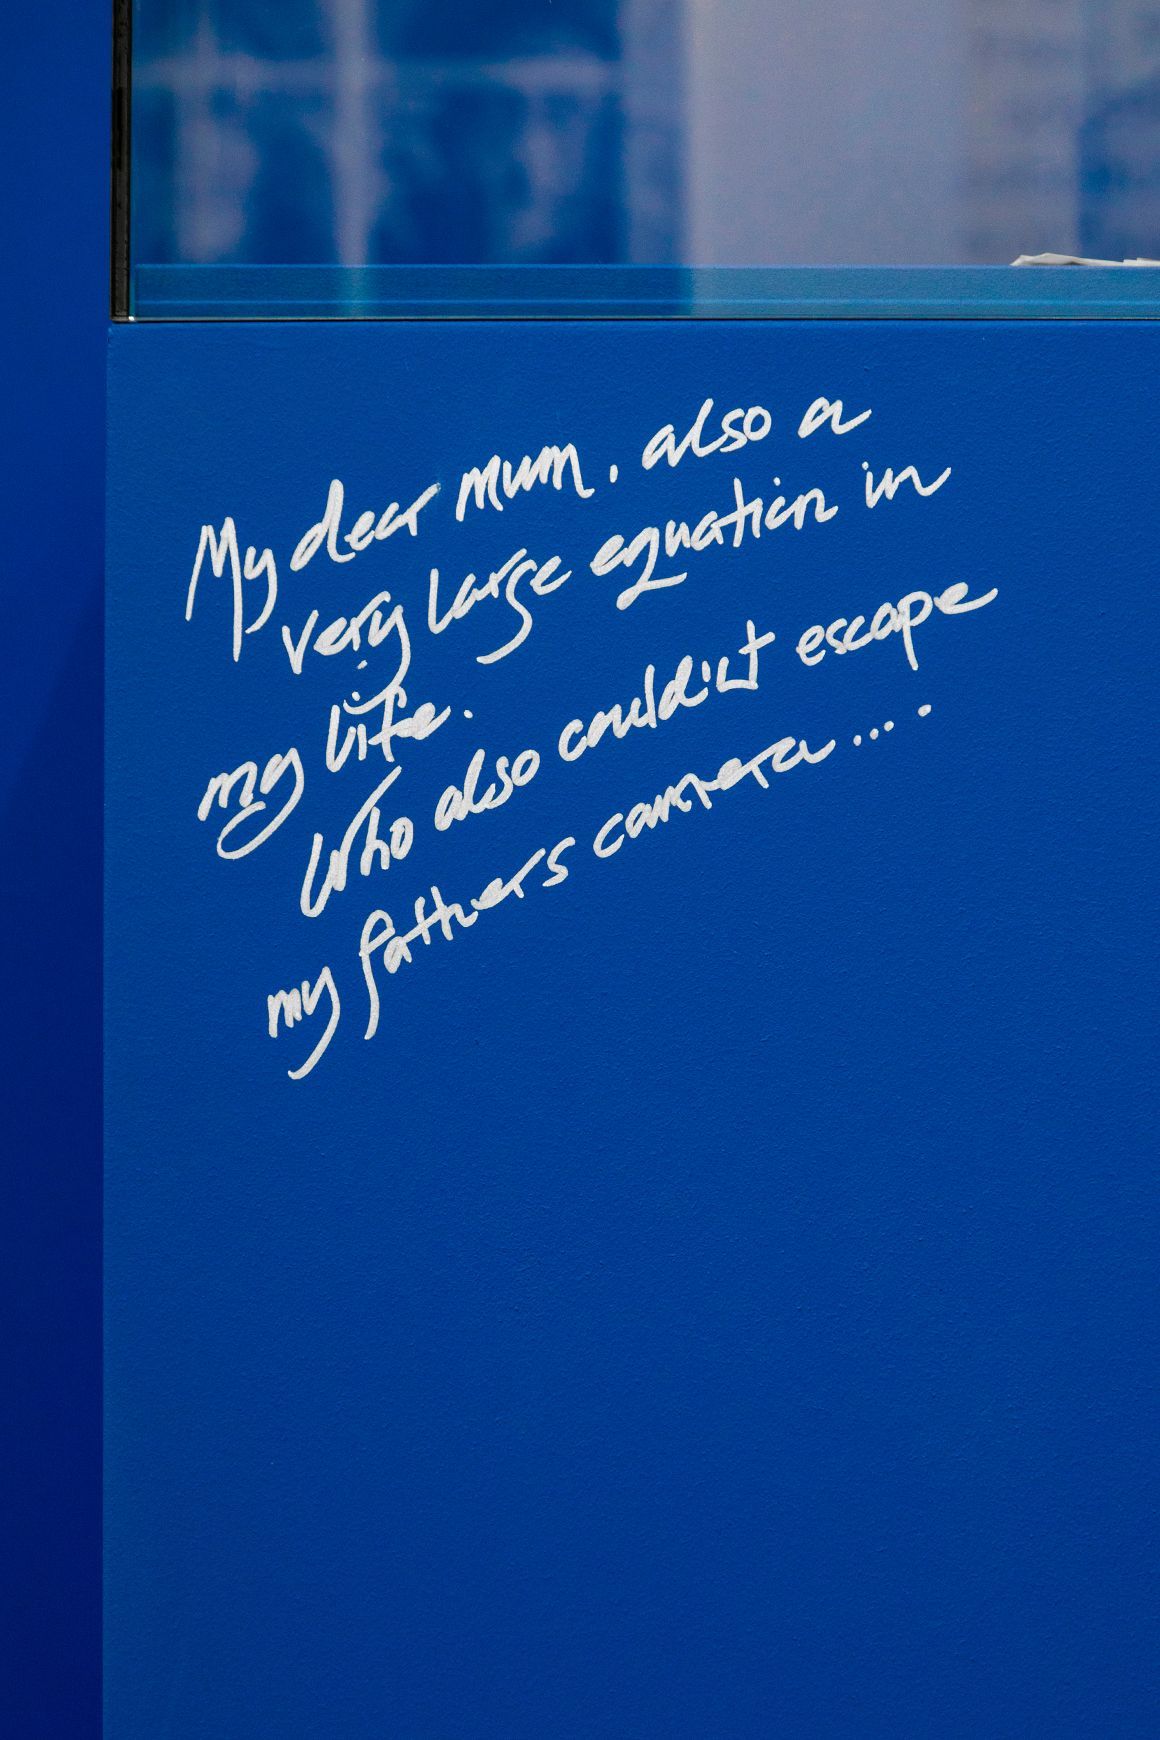 My dear mum, also a
very large equation in
my life.
Who also couldn't escape
my fathers camera ....